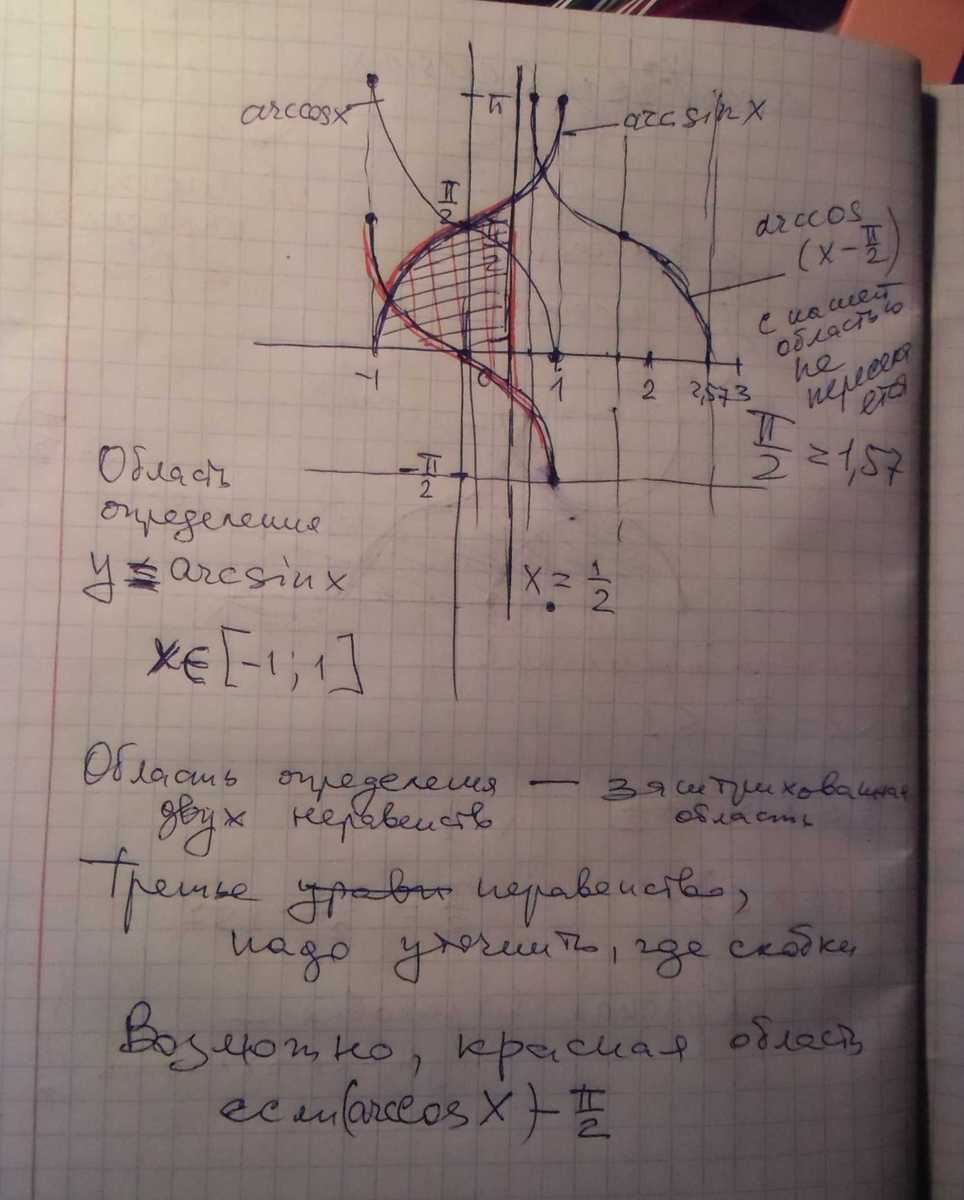 arccosx
π
arcsinx
π/2
π/2
arccos
(x-π/2)
с нашей
областью
не
пересек
ется
-1
0
1
2
2,57
3
π/2 ≈ 1,57
-π/2
Область
определения
y ≤ arcsinx
x = 1/2
x∈[-1;1]
Область определения — заштрихованная
двух неравенств область
Третье уравн неравенство,
надо уточнить, где скобки
Возможно, красная область
если (arccos x) - π/2